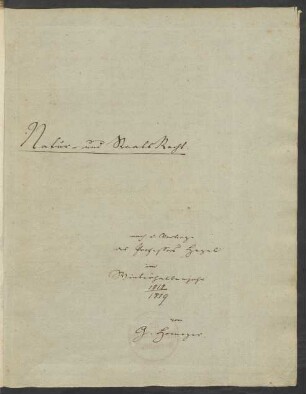 Natur- und Staats Recht.
nach d. Vortrage
des Professors Hegel
im
Winterhalbenjahr
1818/
1819
von
G. Homeyer